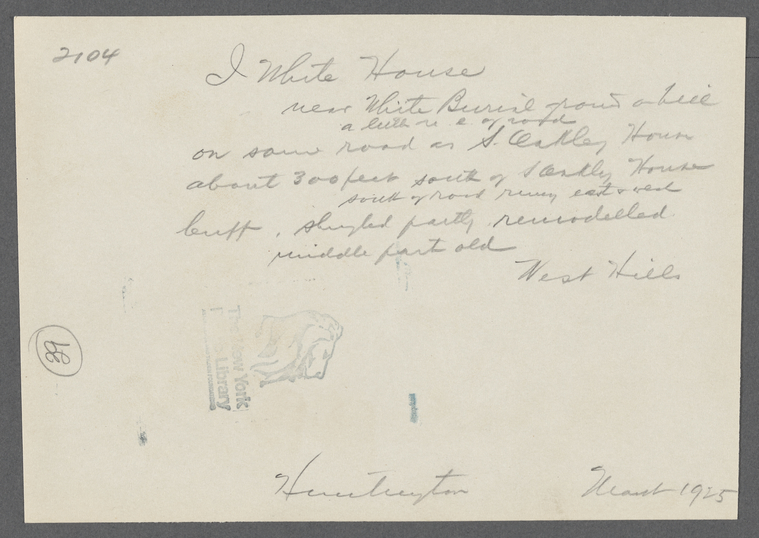 2104
I White House
near White Burial ground a hill
a little n. e. of road
on same road as S. Oakley House
about 300 feet south of S Oakley House
south of road runing east & west
buff, shingled partly remodelled
middle part old
West Hills
The New York
Library
Huntington
1925